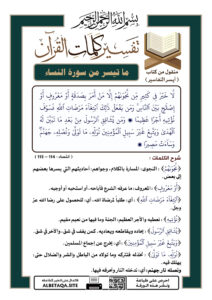 بسم الله الرحمن الرحيم
تفسير كلمات القرآن
ما تيسر من سورة النساء
منقول من كتاب
( أيسر التفاسير )
لَّا خَيْرَ فِي كَثِيرٍ مِّن نَّجْوَاهُمْ إِلَّا مَنْ أَمَرَ بِصَدَقَةٍ أَوْ مَعْرُوفٍ أَوْ
إِصْلَاحٍ بَيْنَ النَّاسِ وَمَن يَفْعَلْ ذَٰلِكَ ابْتِغَاءَ مَرْضَاتِ اللَّهِ فَسَوْفَ
نُؤْتِيهِ أَجْرًا عَظِيمًا وَمَن يُشَاقِقِ الرَّسُولَ مِن بَعْدِ مَا تَبَيَّنَ لَهُ
الْهُدَىٰ وَيَتَّبِعْ غَيْرَ سَبِيلِ الْمُؤْمِنِينَ نُوَلِّهِ مَا تَوَلَّىٰ وَنُصْلِهِ جَهَنَّمَ
وَسَاءَتْ مَصِيرًا
( النساء : 114 - 115 )
شرح الكلمات :
﴿نَّجْوَاهُمْ﴾ : النجوى: المسارة بالكلام، ونجواهم: أحاديثهم التي يسرها بعضهم
إلى بعض.
﴿أَوْ مَعْرُوفٍ﴾ : المعروف: ما عرفه الشرع فأباحه، أو استحبه أو أوجبه.
﴿ابْتِغَاءَ مَرْضَاتِ اللَّهِ﴾ : أي: طلباً لمرضاة الله، أي: للحصول على رضا الله عز
وجل.
﴿نُؤْتِيهِ﴾ : نعطيه والأجر العظيم: الجنة وما فيها من نعيم مقيم.
﴿يُشَاقِقِ الرَّسُولَ﴾ : يحاده ويقاطعه ويعاديه. كمن يقف في شق، والآخر في شق.
﴿وَيَتَّبِعْ غَيْرَ سَبِيلِ الْمُؤْمِنِينَ﴾ : أي: يخرج عن إجماع المسلمين.
﴿نُوَلِّهِ مَا تَوَلَّىٰ﴾ : نخذله فنتركه وما تولاه من الباطل والشر والضلال حتى
يهلك فيه.
﴿وَنُصْلِهِ﴾ نار جهنم: أي: ندخله النار ونحرقه فيها.
ALBETAQA.SITE